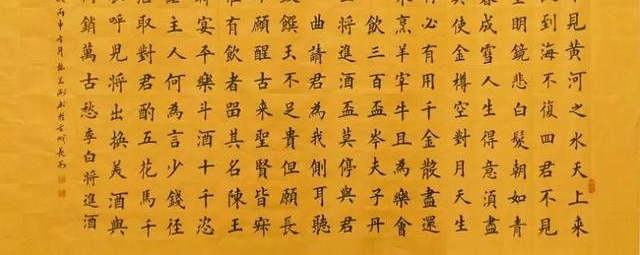 見黃河之水天上來
到海不復回君不見
明鏡悲白髮朝如青
成雪人生得意須盡
使金樽空對月天生
必有用千金散盡還
烹羊宰牛且為樂會
飲三百盃岑夫子丹
將進酒盃莫停與君
曲請君為我側耳聽
饌玉不足貴但願長
願醒古來聖賢皆寂
有飲者留其名陳王
宴平樂斗酒十千恣
主人何為言少錢徑
取對君酌五花馬千
呼兒將出換美酒與
銷萬古愁 李白將進酒
丙申 月 於古城長安